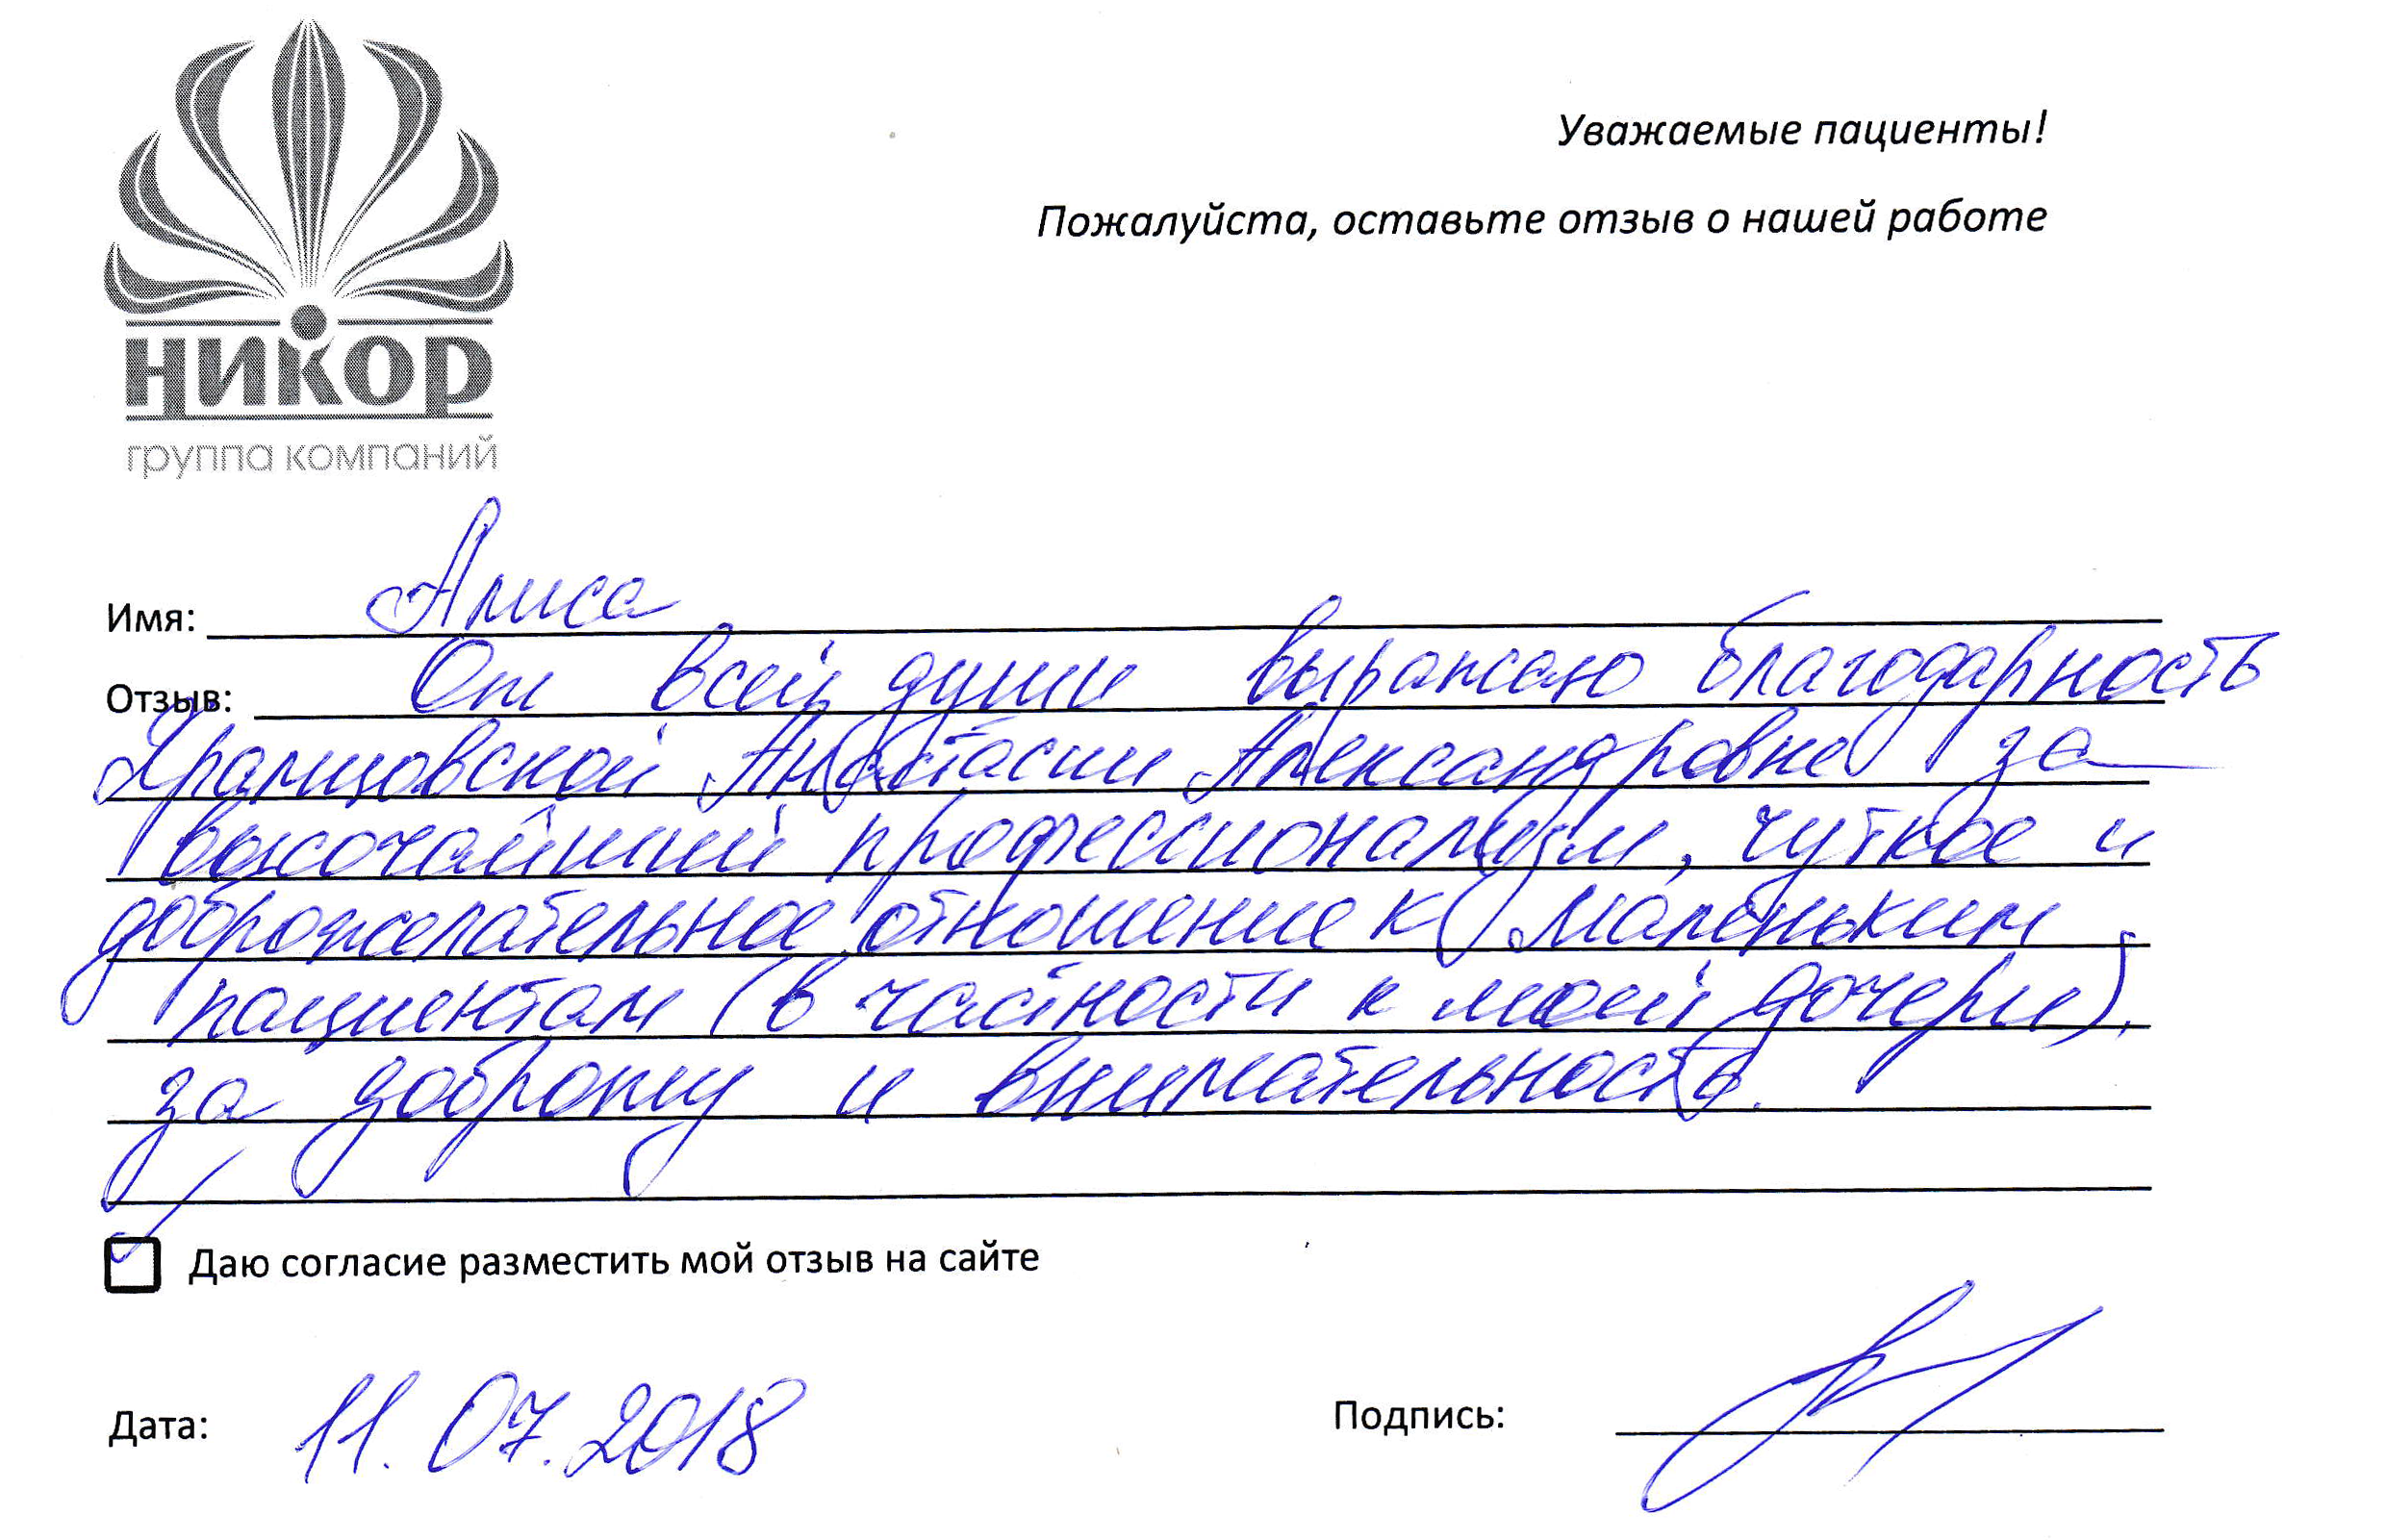 никор
группа компаний
Уважаемые пациенты!
Пожалуйста, оставьте отзыв о нашей работе
Имя: Алиса
Отзыв: От всей души выражаю благодарность
Храмцовской Анастасии Александровне за
высочайший профессионализм, чуткое и
доброжелательное отношение к маленьким
пациентам (в частности к моей дочери),
за доброту и внимательность.
Даю согласие разместить мой отзыв на сайте
Дата: 11.07.2018
Подпись: